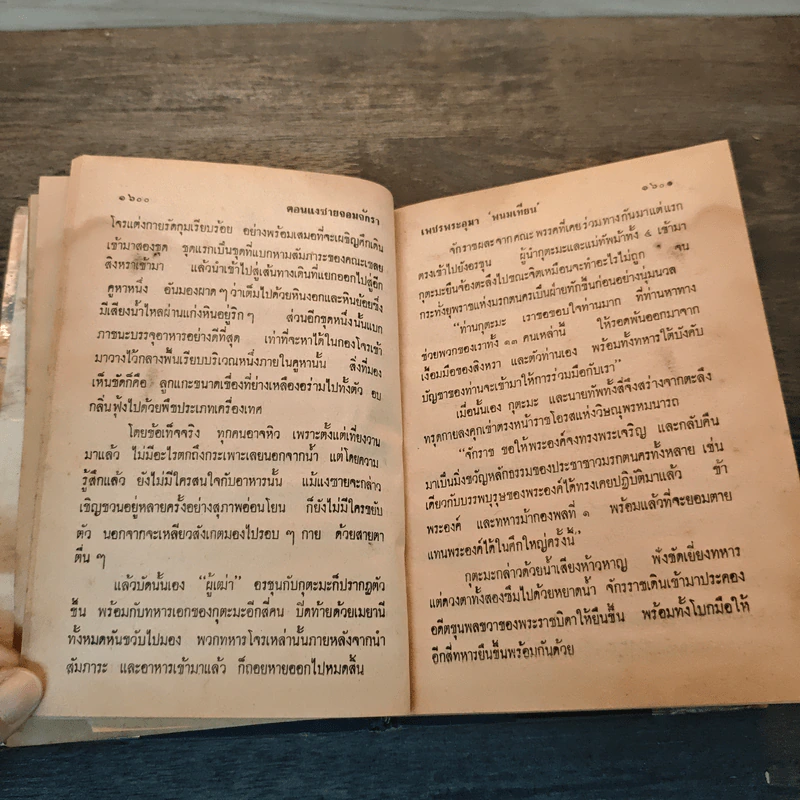 ๑๖๐๐
ตอนแงซายจอมจักรา
โจรแต่งกายรัดกุมเรียบร้อย อย่างพร้อมเสมอที่จะเผชิญศึกเดิน
เข้ามาสองชุด ชุดแรกเป็นชุดที่แบกหามสัมภาระของคณะเชลย
สิงหราเข้ามา แล้วนำเข้าไปสู่เส้นทางเดินที่แยกออกไปสู่อีก
คูหาหนึ่ง อันมองผาด ๆ ว่าเต็มไปด้วยหินงอกและหินย้อยซึ่ง
มีเสียงน้ำไหลผ่านแก่งหินอยู่ริก ๆ ส่วนอีกชุดหนึ่งนั้นแบก
ภาชนะบรรจุอาหารอย่างดีที่สุด เท่าที่จะหาได้ในกองโจรเข้า
มาวางไว้กลางพื้นเรียบบริเวณหนึ่งภายในคูหานั้น สิ่งที่มอง
เห็นชัดก็คือ ลูกแกะขนาดเขื่องที่ย่างเหลืองอร่ามไปทั้งตัว อบ
กลิ่นฟุ้งไปด้วยพืชประเภทเครื่องเทศ
โดยข้อเท็จจริง ทุกคนอาจหิว เพราะตั้งแต่เที่ยงวาน
มาแล้ว ไม่มีอะไรตกถึงกระเพาะเลยนอกจากน้ำ แต่โดยความ
รู้สึกแล้ว ยังไม่มีใครสนใจกับอาหารนั้น แม้แงซายจะกล่าว
เชิญชวนอยู่หลายครั้งอย่างสุภาพอ่อนโยน ก็ยังไม่มีใครขยับ
ตัว นอกจากจะเหลียวสังเกตมองไปรอบ ๆ กาย ด้วยสายตา
ตื่น ๆ
แล้วบัดนั้นเอง “ผู้เฒ่า” อรชุนกับกุตะมะก็ปรากฏตัว
ขึ้น พร้อมกับทหารเอกของกุตะมะอีกสี่คน ปิดท้ายด้วยเมยานี
ทั้งหมดหันขวับไปมอง พวกทหารโจรเหล่านั้นภายหลังจากนำ
สัมภาระ และอาหารเข้ามาแล้ว ก็ถอยหายออกไปหมดสิ้น
๑๖๐๑
เพชรพระอุมา 'พนมเทียน'
จักราชผละจากคณะพรรคที่เคยร่วมทางกันมาแต่แรก
ตรงเข้าไปยังอรชุน ผู้นำกุตะมะและแม่ทัพม้าทั้ง ๔ เข้ามา
กุตะมะยืนจ้องตะลึงไปขณะจิตเหมือนจะทำอะไรไม่ถูก จน
กระทั่งยุพราชแห่งมรกตนครเป็นฝ่ายทักขึ้นก่อนอย่างนุ่มนวล
“ท่านกุตะมะ เราขอขอบใจท่านมาก ที่ท่านหาทาง
ช่วยพวกของเราทั้ง ๑๓ คนเหล่านี้ ให้รอดพ้นออกมาจาก
เงื้อมมือของสิงหรา และตัวท่านเอง พร้อมทั้งทหารใต้บังคับ
บัญชาของท่านจะเข้ามาให้การร่วมมือกับเรา”
เมื่อนั้นเอง กุตะมะ และนายทัพทั้งสี่จึงสร่างจากตะลึง
ทรุดกายลงคุกเข่าตรงหน้าราชโอรสแห่งวิษณุพรหมนารถ
“จักราช ขอให้พระองค์จงทรงพระเจริญ และกลับคืน
มาเป็นมิ่งขวัญหลักธรรมของประชาชาวมรกตนครทั้งหลาย เช่น
เดียวกับบรรพบุรุษของพระองค์ได้ทรงเคยปฏิบัติมาแล้ว ข้า
พระองค์ และทหารม้ากองพลที่ ๑ พร้อมแล้วที่จะยอมตาย
แทนพระองค์ได้ในศึกใหญ่ครั้งนี้”
กุตะมะกล่าวด้วยน้ำเสียงห้าวหาญ ฟังชัดเยี่ยงทหาร
แต่ดวงตาทั้งสองซึมไปด้วยหยาดน้ำ จักรราชเดินเข้ามาประคอง
อดีตขุนพลขวาของพระราชบิดาให้ยืนขึ้น พร้อมทั้งโบกมือให้
อีกสี่ทหารยืนขึ้นพร้อมกันด้วย